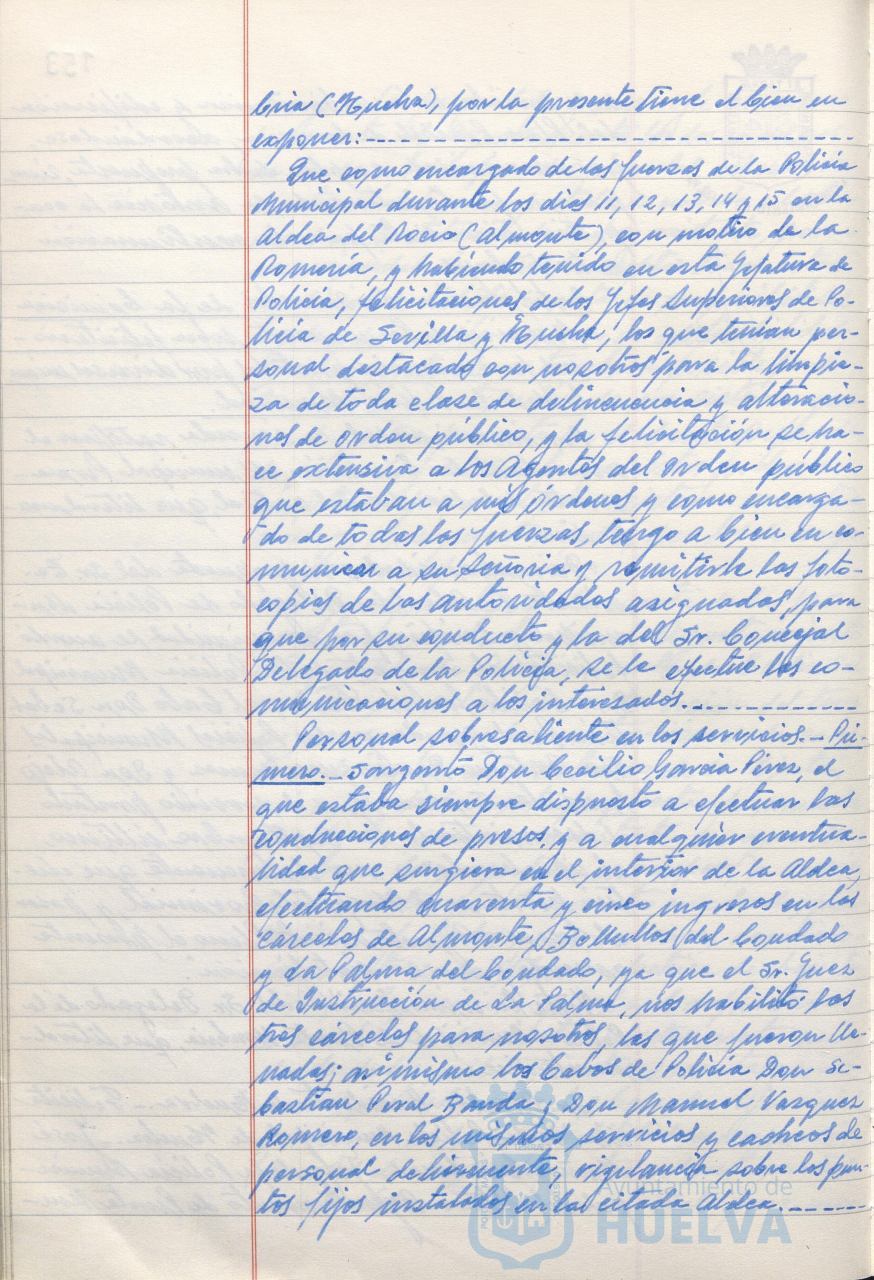 bria (Huelva), por la presente tiene el bien en
exponer:
Que como encargado de las fuerzas de la Policia
Municipal durante los dias 11, 12, 13, 14 y 15 en la
Aldea del Rocio (Almonte), con motivo de la
Romería, y habiendo tenido en esta Jefatura de
Policia, felicitaciones de los Jefes Superiores de Po-
licia de Sevilla y Huelva, los que tenian per-
sonal destacado con nosotros para la limpie-
za de toda clase de delincuencia y alteracio-
nes de orden público, y la felicitación se ha-
ce extensiva a los Agentes del orden público
que estaban a mis órdenes y como encarga-
do de todas las fuerzas, tengo a bien en co-
municar a su Señoria y remitirle las foto-
copias de las autoridades asignadas, para
que por su conducto y la del Sr. Concejal
Delegado de la Policia, se le efectue las co-
municaciones a los interesados.
Personal sobresaliente en los servicios.- Pri-
mero.- Sargento Don Cecilio García Pérez, el
que estaba siempre dispuesto a efectuar las
conducciones de presos, y a cualquier eventua-
lidad que surgiera en el interior de la Aldea,
efectuando cuarenta y cinco ingresos en las
Cárceles de Almonte, Bollullos del Condado
y La Palma del Condado, ya que el Sr. Juez
de Instrucción de La Palma, nos habilitó las
tres cárceles para nosotros, las que fueron lle-
nadas; asimismo los Cabos de Policía Don Se-
bastian Peral Banda y Don Manuel Vazquez
Romero, en los mismos servicios y cacheos de
personal delincuente, vigilancia sobre los pun-
tos fijos instalados en la citada Aldea.
Ayuntamiento de
HUELVA